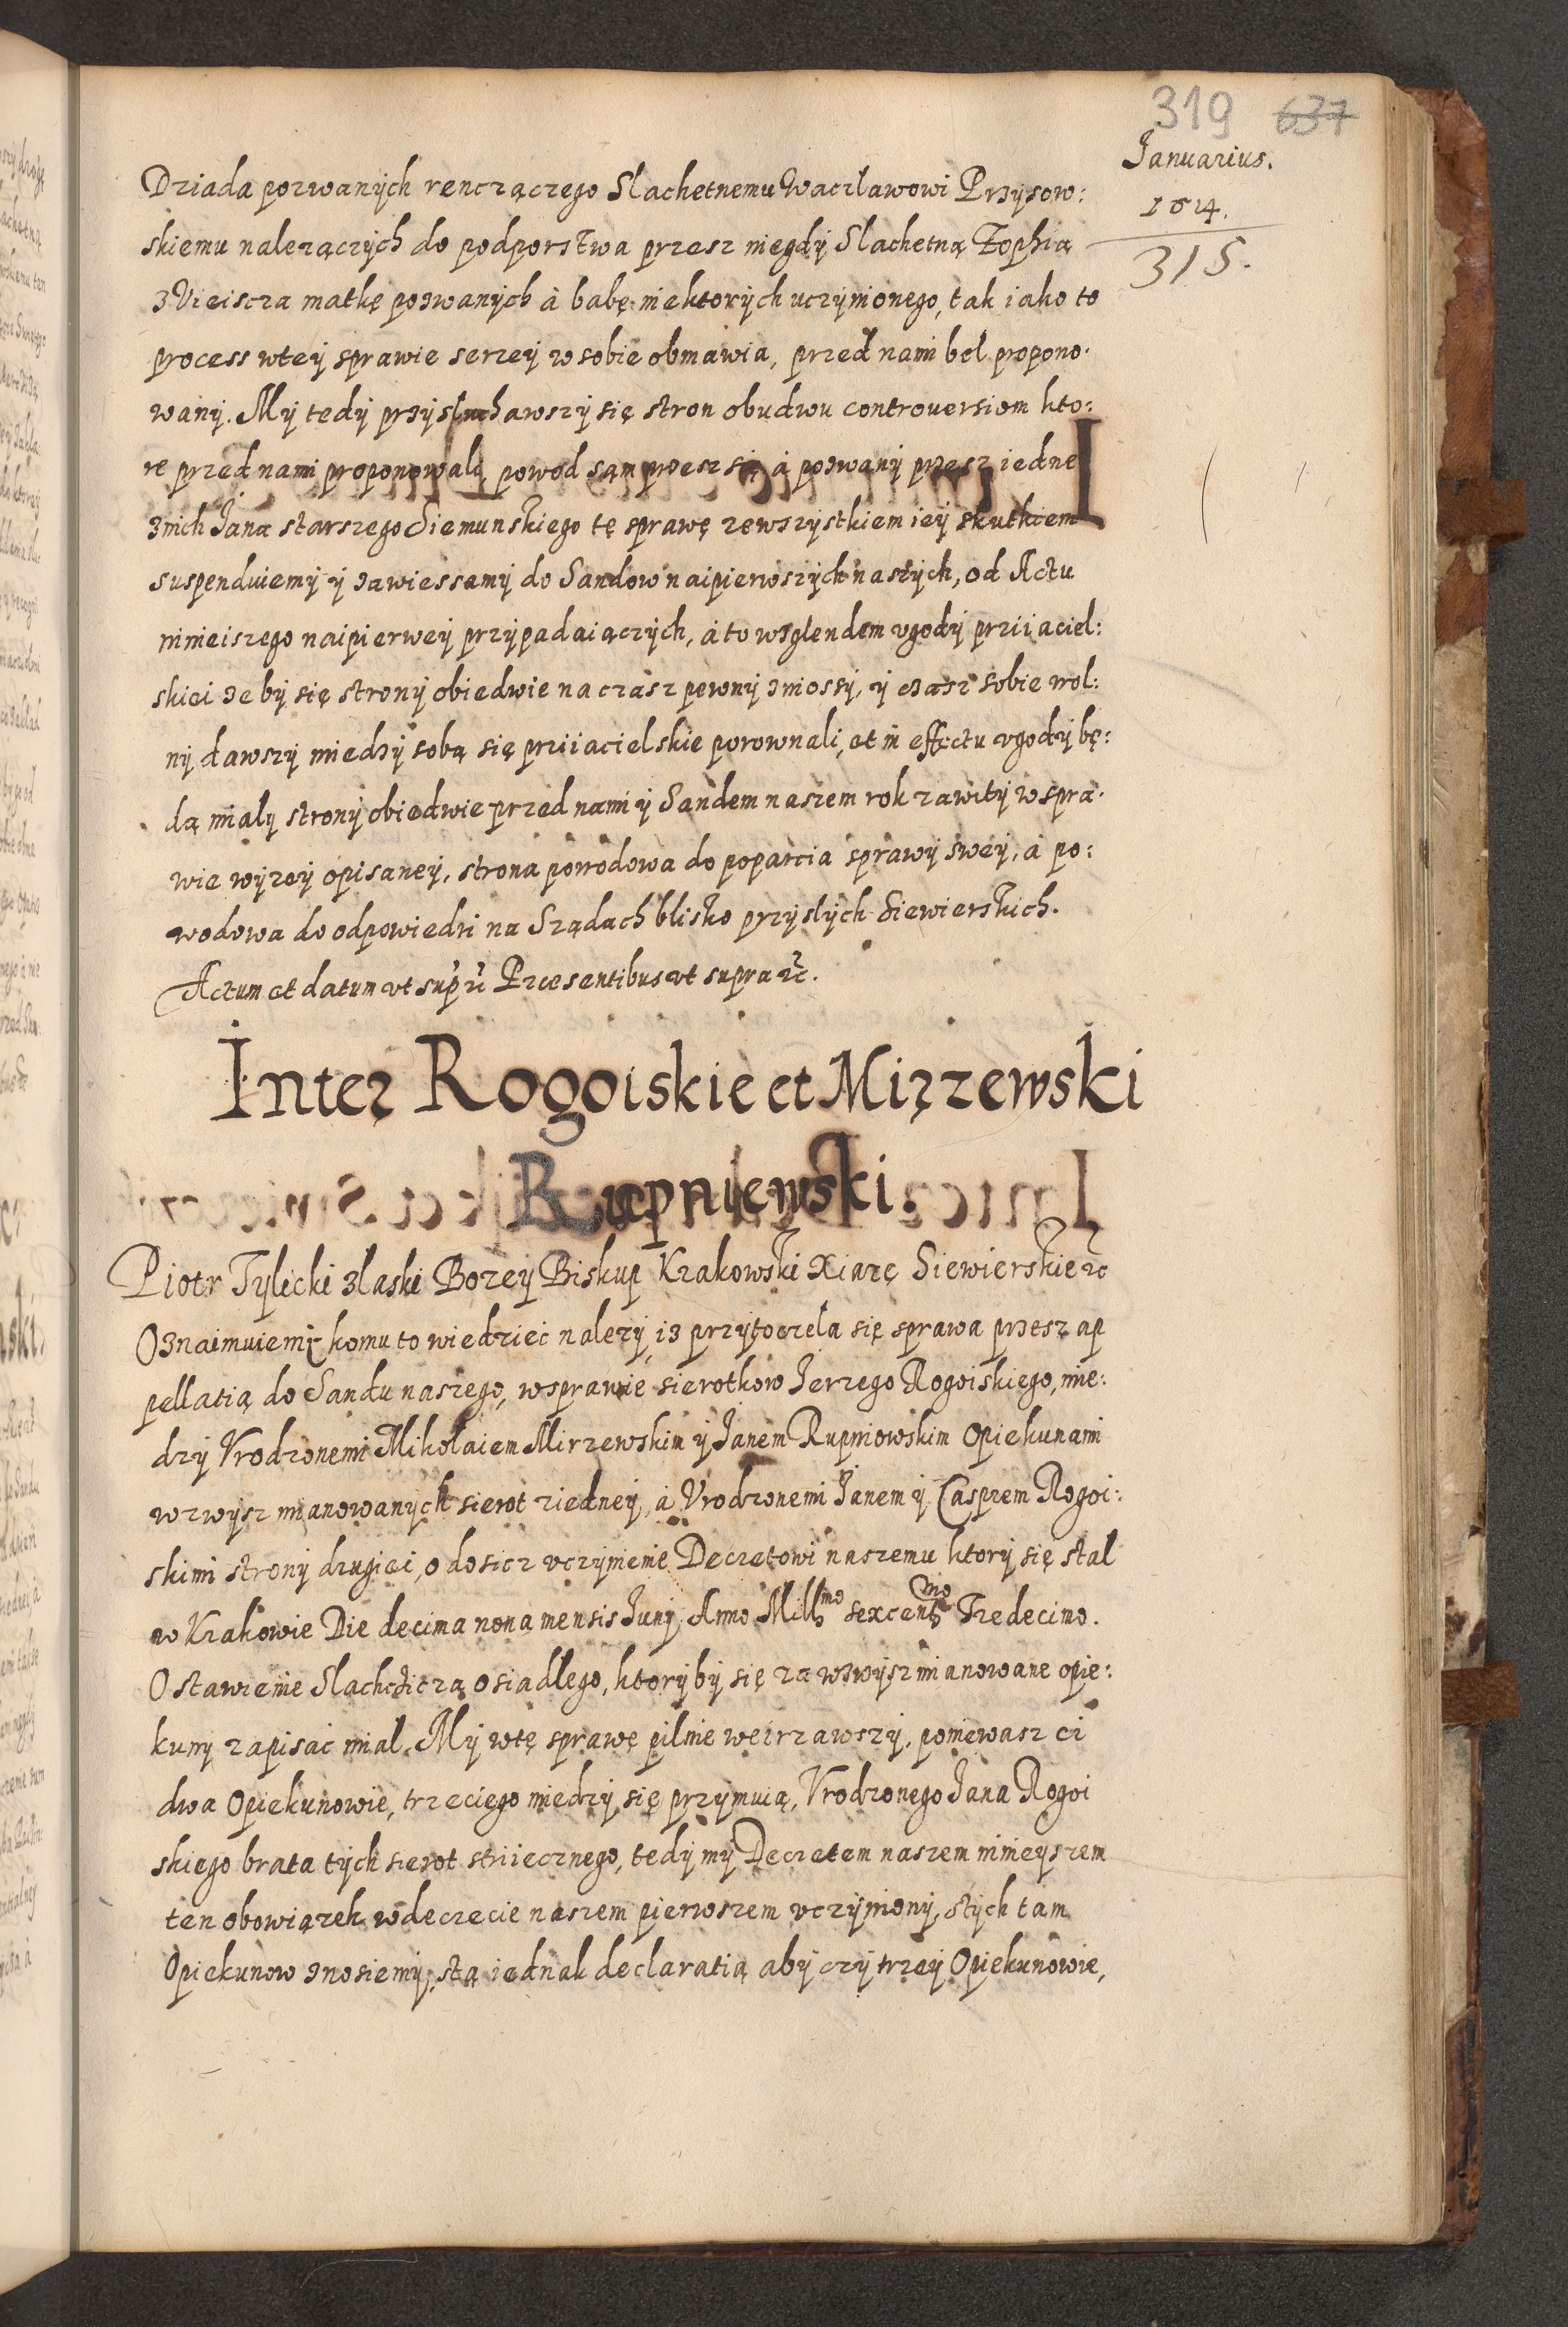 319 637
Januarius.
1614.
315.
Dziada pozwanÿch renczączego Slachetnemu Waczławowi Przÿsow:
skiemu nalezączÿch do podporstwa przesz niegdÿ Slachetną Zophią
z Vieiscza matkę pozwanÿch à babę niektorÿch uczÿnionego, tak iako to
process wteÿ sprawie serzeÿ w sobie obmawia, przed nami bel propono:
wanÿ. Mÿ tedÿ przÿsluchawszÿ się stron obudwu controuersiom kto:
re przed nami proponowalÿ powod sąm przesz się à pozwanÿ przesz iedne
z nich Jana starszego Siemunskiego tę sprawę zewszÿstkiem ieÿ skutkiem
suspenduiemÿ ÿ zawiessamÿ do Sandow naipierwszÿch naszÿch, od Actu
ninieiszego naipierweÿ przÿpadaiączÿch, à to wzglendem vgodÿ priiaciel:
skiei ze bÿ się stronÿ obiedwie na czasz pewnÿ znioszÿ, ÿ czasz sobie wol:
nÿ dawszÿ miedzÿ sobą się priiacielskie porownali, et in effectu vgodÿ bę:
dą mialÿ stronÿ obiedwie przed nami ÿ Sandem naszem rok zawitÿ w spra:
wie wÿzeÿ opisaneÿ, strona powodowa do poparcia sprawÿ sweÿ, à po:
wodowa do odpowiedzi na Sządach blisko przÿslÿch Siewierskich.
Actum et datum vt supr̃ Præsentibus vt supra ꝛc̃.
Inter Rogoiskie et Mirzewski
Rupniewski.
Piotr Tÿlicki zlaski Bozeÿ Biskup Krakowski Xiazę Siewierskie ꝛc
Oznaimuiemÿ komu to wiedziec nalezÿ, iz przÿtoczela się sprawa przesz ap
pellatią do Sandu naszego, wsprawie sierotkow Jerzego Rogoiskiego, mie:
dzÿ Vrodzonemi Mikołaiem Mirzewskim ÿ Janem Rupniowskim Opiekunami
wzwÿsz mianowanÿch sierot ziedneÿ, à Vrodzonemi Janem ÿ Casprem Rogoi:
skimi stronÿ drugiei, o dosicz vczÿnienie Decretowi naszemu ktorÿ się stal
w Krakowie Die decima nona mensis Junÿ Anno Mill̃mo sexcent̃mo Tredecimo.
O stawienie Slachcicza osiadlego, ktorÿ bÿ się za wzwÿsz mianowane opie:
kunÿ zapisac mial. Mÿ wtę sprawę pilnie weirzawszÿ, poniewasz ci
dwa Opiekunowie, trzeciego miedzÿ się przÿmuią, Vrodzonego Jana Rogoi
skiego brata tÿch sierot striiecznego, tedÿ mÿ Decretem naszem ninieÿszem
ten obowiązek wdecrecie naszem pierwszem vczÿnionÿ, stÿch tam
Opiekunow znosiemÿ, stą iednak declaratią abÿ czÿ trzeÿ Opiekunowie,